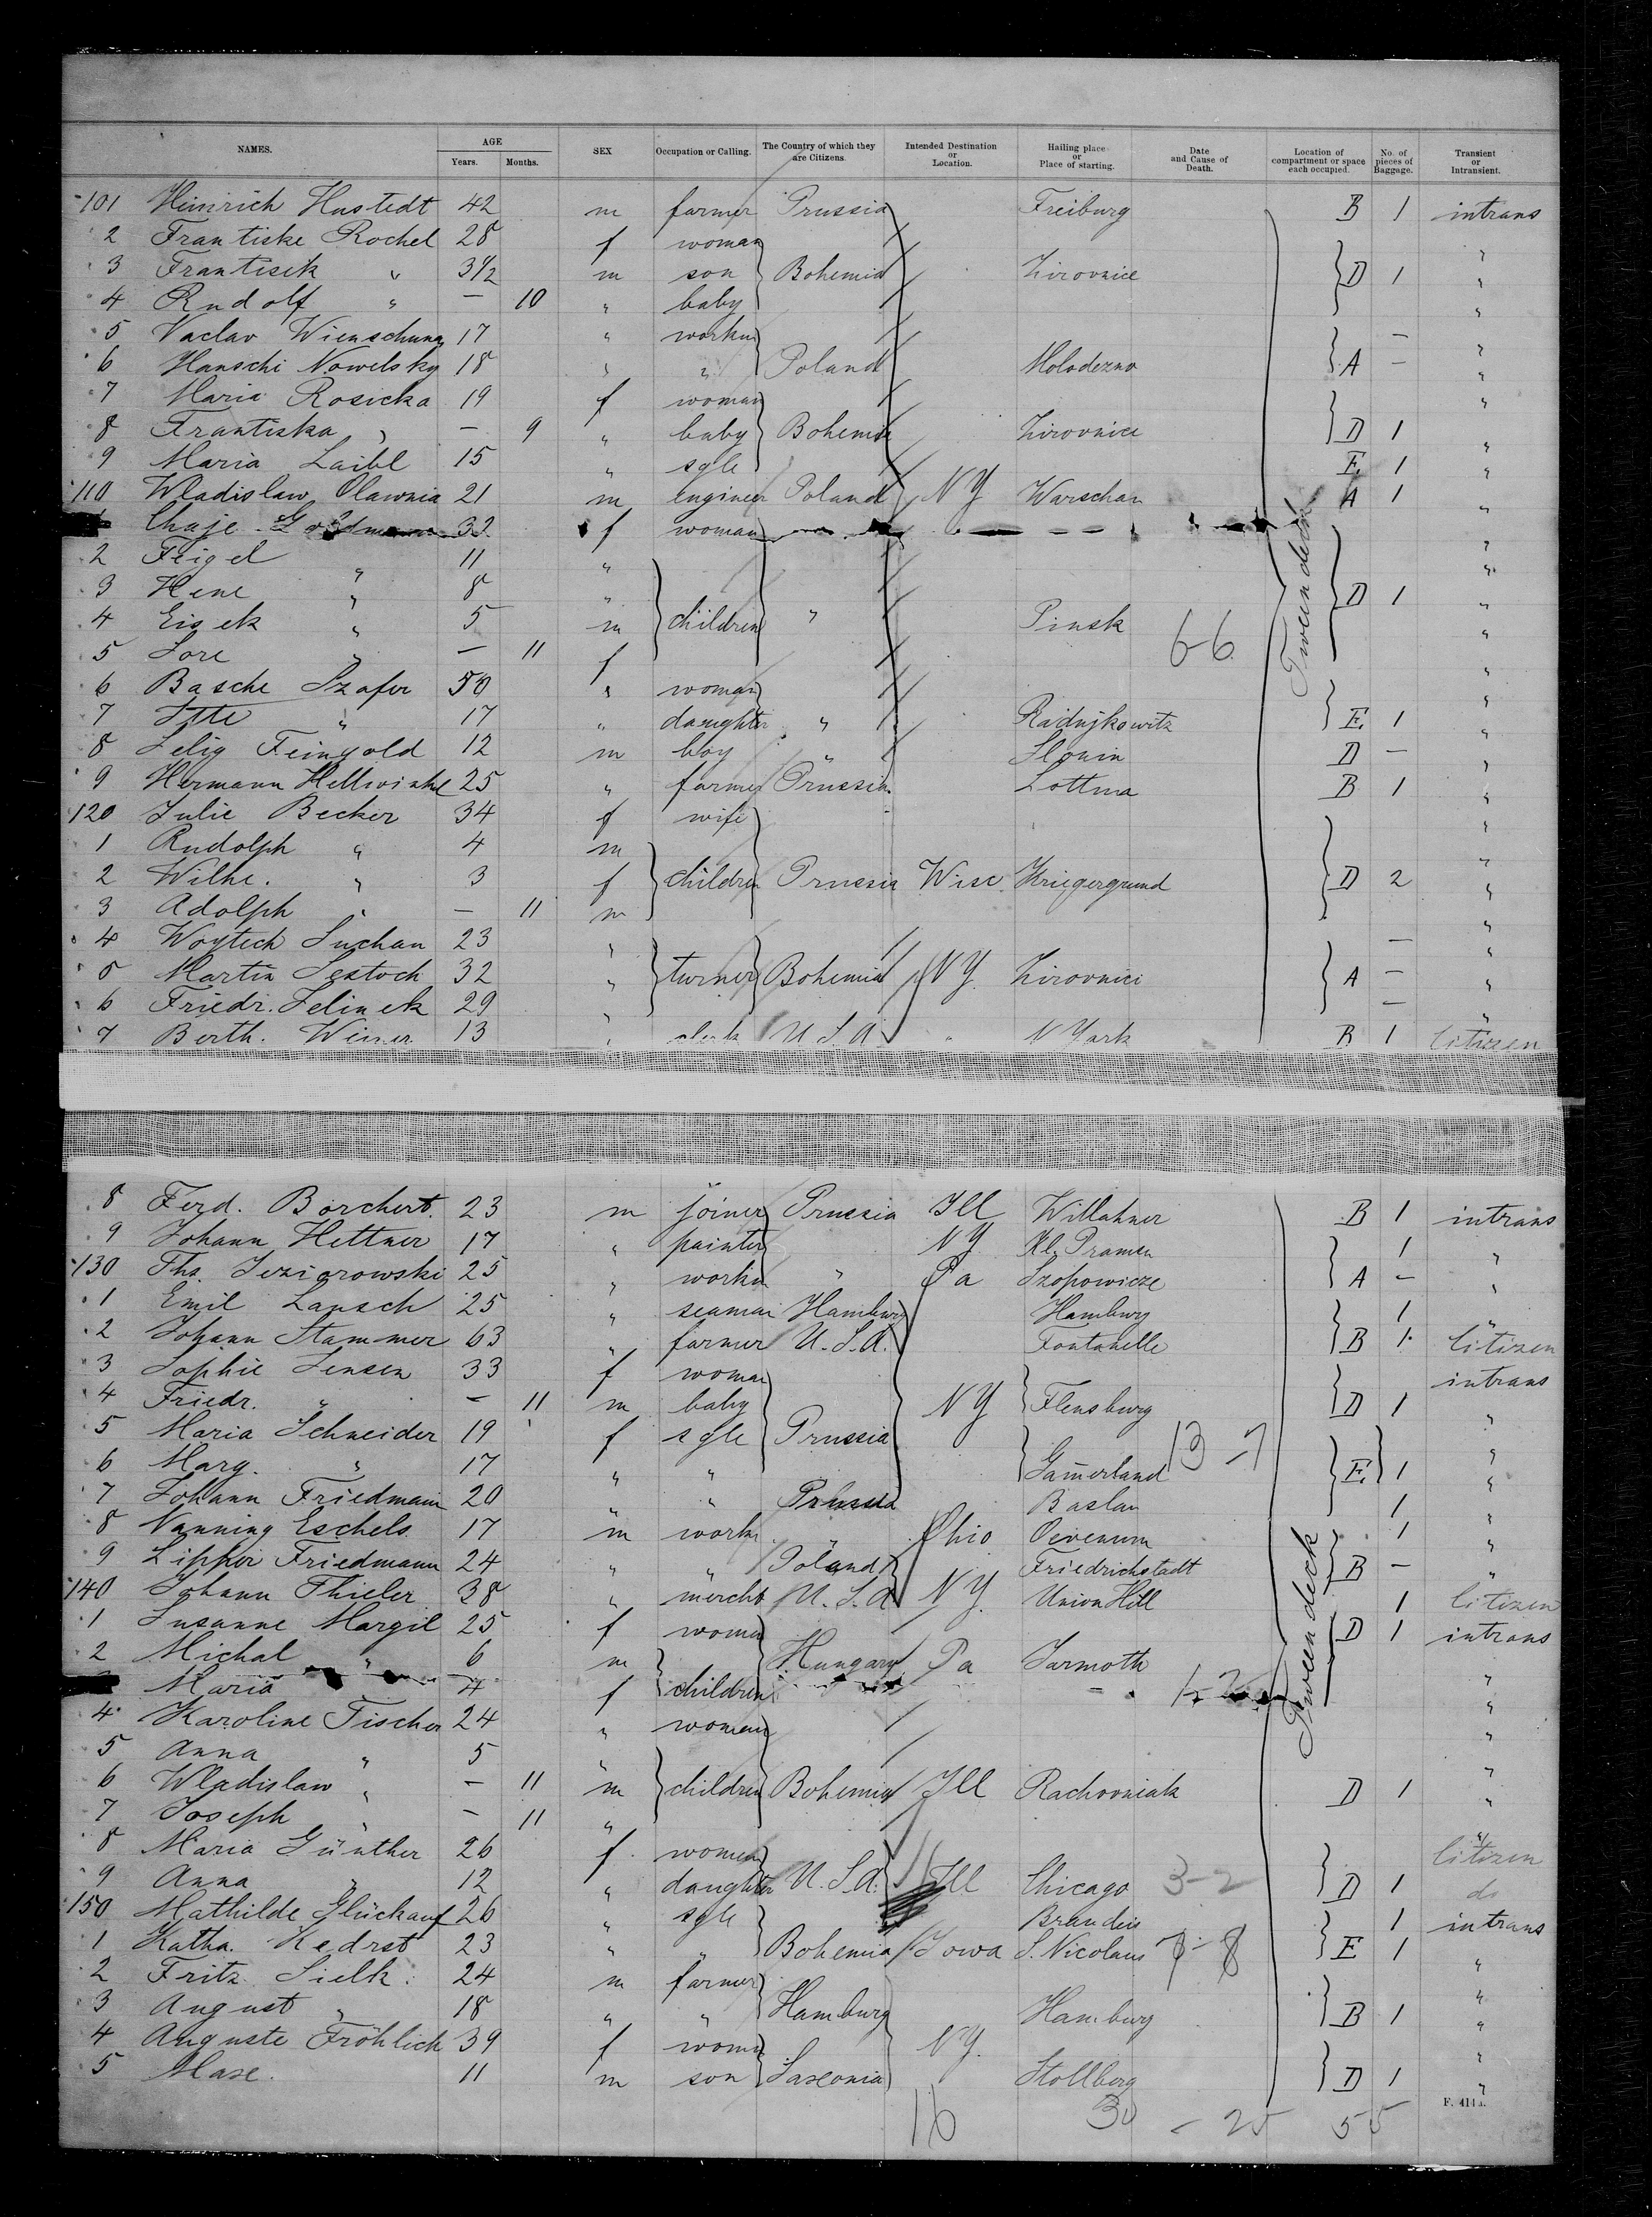 NAMES. AGE Years. Months. SEX Occupation or Calling. The Country of which they are Citizens. Intended Destination or Location. Hailing place or Place of starting. Date and Cause of Death. Location of compartment or space each occupied. No. of pieces of Baggage. Transient or Intransient.
101 Heinrich Hustedt 42 m farmer Prussia Freiburg B 1 intrans
2 Frantiske Rochel 28 f woman "
3 Frantisek " 3 1/2 m son Bohemia Zirovnice D 1 "
4 Rudolf " — 10 " baby "
5 Vaclav 17 " — "
6 Hanschi Nowelsky 18 " " Poland Molodezno A — "
7 Maria Rosicka 19 f woman "
8 Frantiska " — 9 " baby Bohemia Zirovnice D 1 "
9 Maria Laibl 15 " sgle E. 1 "
110 Wladislaw Olawnia 21 m engineer Poland NY Warschau A 1 "
Chaje Goldmann 32 f woman "
2 Feigel " 11 " "
3 Hene " 8 " D 1 "
4 Eisek " 5 m children " Pinsk 66 "
5 " — 11 f "
6 Basche Szafer 50 " woman "
7 Itte " 17 " daughter " E. 1 "
8 Selig Feingold 12 m boy " Slonin D — "
9 Hermann 25 " farmer Prussia B 1 "
120 Julie Becker 34 f wife "
1 Rudolph " 4 m "
2 Wilhe. " 3 f children Prussia Wisc. Kriegergrund D 2 "
3 Adolph " — 11 m "
4 Woytech Suchan 23 " — "
5 Martin 32 " turner Bohemia NY Zirovnici A — "
6 Friedr. Jelinek 29 " — "
7 Berth. Weiner 13 " clerk U.S.A. " N York B 1 Citizen
Tweendeck
8 Ferd. Borchert. 23 m joiner Prussia Ill B 1 intrans
9 Johann Hettner 17 " painter NY Kl. Pramen 1 "
130 Ths. Jeziorowski 25 " workm " Pa Szopowicze A — "
1 Emil Lansch 25 " seaman Hamburg Hamburg 1 "
2 Johann Stammer 63 " farmer U.S.A. Fontanelle B 1 Citizen
3 Sophie Jensen 33 f woman intrans
4 Friedr. " — 11 m baby NY Flensburg D 1 "
5 Maria Schneider 19 f sgle Prussia 13-7 "
6 Marg. " 17 " " E. 1 "
7 Johann Friedmann 20 " " Prussia 1 "
8 Nanning Eschels 17 m workm " Ohio Oevenum 1 "
9 Friedmann 24 " " Poland Friedrichstadt B — "
140 Johann Thieler 38 " mercht U.S.A. NY. Union Hill 1 Citizen
1 Susanne Margil 25 f woman D 1 intrans
2 Michal " 6 m Hungary Pa Jarmoth "
Maria 4 f children "
4 Karoline Fischer 24 " woman "
5 Anna " 5 " "
6 Wladislaw " — 11 m children Bohemia Ill Rachovniak D 1 "
7 Joseph " — 11 " "
8 Maria Günther 26 f woman Citizen
9 Anna " 12 " daughter U.S.A. Ill Chicago 3-2 D 1 do
150 Mathilde Glückauf 26 " sgle Brandeis 1 intrans
1 Katha. Kedrst 23 " " Bohemia Iowa S. Nicolaus E 1 "
2 Fritz Sielk 24 m farmer "
3 August " 18 " " Hamburg Hamburg B 1 "
4 Auguste Fröhlich 39 f woman NY. "
5 Max. 11 m son Saxonia Stollberg D 1 "
Tweendeck
F. 414
16 30 - 25 55